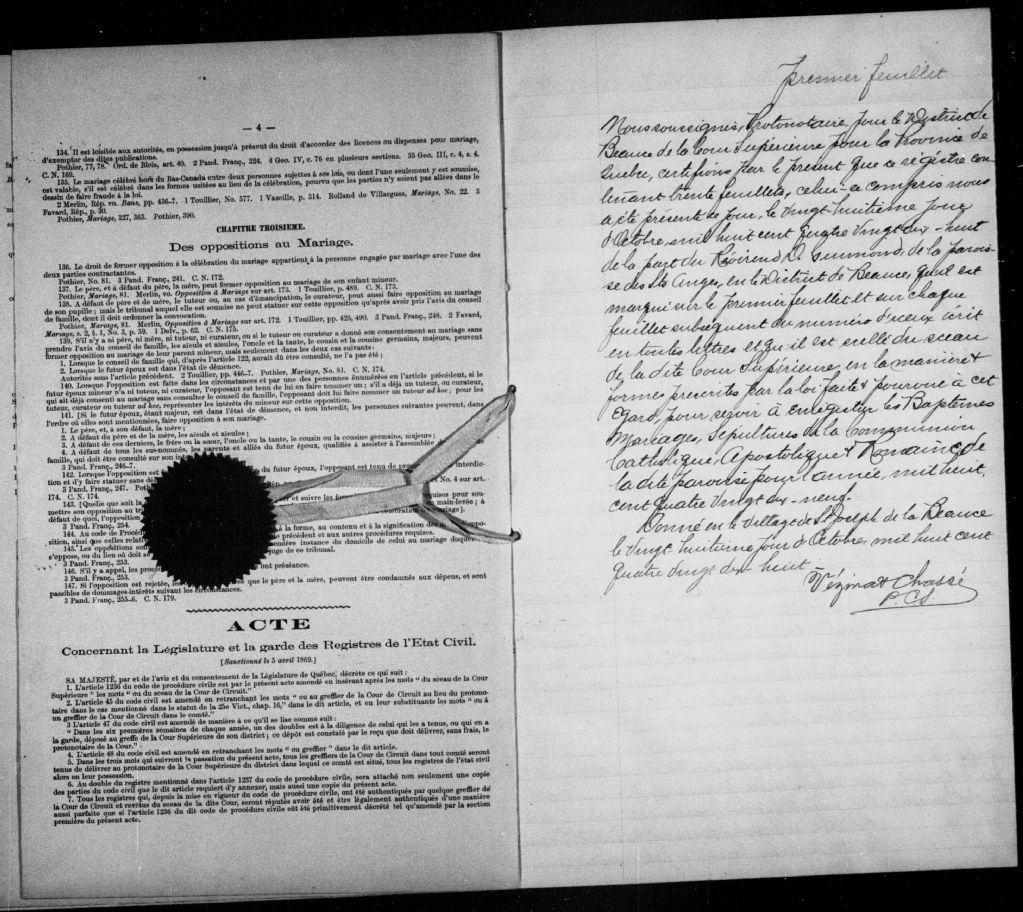 — 4 —
134. Il est loisible aux autorités, en possession jusqu'à présent du droit d'accorder des licences ou dispenses pour mariage,
d'exempter des dites publications.
Pothier, 77, 78. Ord. de Blois, art. 40. 2 Pand. Franç., 324. 4 Geo. IV, c. 76 en plusieurs sections. 35 Geo. III, c. 4, s. 4.
C. N. 169.
135. Le mariage célébré hors du Bas-Canada entre deux personnes sujettes à ses lois, ou dont l'une seulement y est soumise,
est valable, s'il est célébré dans les formes usitées au lieu de la célébration, pourvu que les parties n'y soient pas allées dans le
dessin de faire fraude à la loi.
2 Merlin, Rép. vo. Bans, pp. 436-7. 1 Toullier, No. 577. 1 Vazeille, p. 314. Rolland de Villargues, Mariage, No. 22. 3
Favard, Rép., p. 30.
Pothier, Mariage, 327, 363. Pothier, 390.
CHAPITRE TROISIEME.
Des oppositions au Mariage.
136. Le droit de former opposition à la célébration du mariage appartient à la personne engagée par mariage avec l'une des
deux parties contractantes.
Pothier, No. 81. 3 Pand. Franç., 241. C. N. 172.
137. Le père, et à défaut du père, la mère, peut former opposition au mariage de son enfant mineur.
Pothier, Mariage, 81. Merlin, vo. Opposition à Mariage sur art. 173. 1 Toullier, p. 489. C. N. 173.
138. A défaut de père et de mère, le tuteur ou, au cas d'émancipation, le curateur, peut aussi faire opposition au mariage
de son pupille; mais le tribunal auquel elle est soumise ne peut statuer sur cette opposition qu'après avis pris l'avis du conseil
de famille, dont il doit ordonner la convocation.
Pothier, Mariage, 81. Merlin, Opposition à Mariage sur art. 172. 1 Toullier, pp. 425, 490. 3 Pand. Franç., 248. 2 Favard,
Mariage, s. 2, § 1, No. 3, p. 59. 1 Delv., p. 62. C. N. 175.
139. S'il n'y a ni père, ni mère, ni tuteur, ni curateur, ou si le tuteur ou curateur a donné son consentement au mariage sans
prendre l'avis du conseil de famille, les aïeuls et aïeules, l'oncle et la tante, le cousin et la cousine germains, majeurs, peuvent
former opposition au mariage de leur parent mineur, mais seulement dans les deux cas suivants:
1. Lorsque le conseil de famille qui, d'après l'article 122, aurait dû être consulté, ne l'a pas été;
2. Lorsque le futur époux est dans l'état de démence.
Autorités sous l'article précédent. 2 Toullier, pp. 446-7. Pothier, Mariage, No. 81. C. N. 174.
140. Lorsque l'opposition est faite dans les circonstances et par une des personnes énumérées en l'article précédent, si le
futur époux mineur n'a ni tuteur, ni curateur, l'opposant est tenu de lui en faire nommer un; s'il a déjà un tuteur, ou curateur,
qui ait déjà consenti au mariage sans consulter le conseil de famille, l'opposant doit lui faire nommer un tuteur ad hoc; pour les
tuteur, curateur ou tuteur ad hoc, représenter les intérêts du mineur sur cette opposition.
141. [Si le futur époux, étant majeur, est dans l'état de démence, et non interdit, les personnes suivantes peuvent, dans
l'ordre où elles sont mentionnées, faire opposition à son mariage.
1. Le père, et, à son défaut, la mère;
2. A défaut du père et de la mère, les aïeuls et aïeules;
3. A défaut de ces derniers, le frère ou la sœur, l'oncle ou la tante, le cousin ou la cousine germains, majeurs;
4. A défaut de tous les sus-nommés, les parents et alliés du futur époux, qualifiés à assister à l'assemblée de
famille, qui doit être consulté sur son
3 Pand. Franç., 246-7.
142. Lorsque l'opposition est du futur époux, l'opposant est tenu de interdic-
tion et d'y faire statuer sans No. 4 sur art.
3 Pand. Franç., 247. Poth
174. C. N. 174.
143. [Quelle que soit la et suivre les for uises pour sou-
mettre son opposition au tr main-levée; à
défaut de quoi, l'opposition
3 Pand. Franç., 254.
144. Au code de Procéd à la forme, au contenu et à la signification de oppo-
sition, ainsi que celles relat précédent et aux autres procédures requises.
145. Les oppositions son emière instance du domicile de celui au mariage duquel
s'oppose, ou du lieu où doit se uge de ce tribunal.
3 Pand. Franç., 253.
146. S'il y a appel, les procé ont préséance.
3 Pand. Franç., 253.
147. Si l'opposition est rejetée, les que le père et la mère, peuvent être condamnés aux dépens, et sont
passibles de dommages-intérêts suivant les circonstances.
3 Pand. Franç., 255-6. C. N. 179.
ACTE
Concernant la Législature et la garde des Registres de l'Etat Civil.
[Sanctionné le 5 avril 1869.]
SA MAJESTÉ, par et de l'avis et du consentement de la Législature de Québec, décrète ce qui suit:
1. L'article 1236 du code de procédure civile est par le présent acte amendé en insérant après les mots " du sceau de la Cour
Supérieure " les mots " ou du sceau de la Cour de Circuit."
2. L'article 45 du code civil est amendé en retranchant les mots " ou au greffier de la Cour de Circuit au lieu du protono-
taire dans le cas mentionné dans le statut de la 25e Vict., chap. 16," dans le dit article, et en leur substituant les mots " ou à
un greffier de la Cour de Circuit dans le comté."
3 L'article 47 du code civil est amendé de manière à ce qu'il se lise comme suit:
" Dans les six premières semaines de chaque année, un des doubles est à la diligence de celui qui les a tenus, ou qui en a
la garde, déposé au greffe de la Cour Supérieure de son district; ce dépôt est constaté par le reçu que doit délivrer, sans frais, le
protonotaire de la Cour."
4. L'article 48 du code civil est amendé en retranchant les mots " ou greffier " dans le dit article.
5. Dans les trois mois qui suivront la passation du présent acte, tous les greffiers de la Cour de Circuit dans tout comté seront
tenus de délivrer au protonotaire de la Cour Supérieure du district dans lequel ce comté est situé, tous les registres de l'état civil
alors en leur possession.
6. Au double du registre mentionné dans l'article 1237 du code de procédure civile, sera attaché non seulement une copie
des parties du code civil que le dit article requiert d'y annexer, mais aussi une copie du présent acte.
7. Tous les registres qui, depuis la mise en vigueur du code de procédure civile, ont été authentiqués par quelque greffier de
la Cour de Circuit et revêtus du sceau de la dite Cour, seront réputés avoir été et être légalement authentiqués d'une manière
aussi parfaite que si l'article 1236 du dit code de procédure civile eût été primitivement décrété tel qu'amendé par la section
première du présent acte.
premier feuillet
Nous soussignés, Protonotaire pour le District de
Beauce de la Cour Supérieure pour la Province de
Québec, certifions par le présent que ce régistre con
tenant trente feuillets, celui-ci compris nous
a été présenté ce jour, le vingt-huitième jour
d'Octobre, mil huit cent quatre vingt dix-huit
de la part du Révérend D. Guimond, de la parois-
se des Sts Anges, en le District de Beauce, qu'il est
marqué sur le premier feuillet et sur chaque
feuillet subséquent du numéro d'iceux écrit
en toutes lettres et qu'il est scellé du sceau
de la dite Cour Supérieure en la manière &
formes prescrites par la loi faite & pourvue à cet
égard, pour servir à Enregistrer les Baptêmes
Mariages, Sépultures de la Communion
Catholique, Apostolique & Romaine de
la dite paroisse pour l'année, mil huit
cent quatre vingt dix-neuf.
Donné en le village de St Joseph de la Beauce
le vingt huitième jour d'Octobre, mil huit cent
quatre vingt dix huit
Vézina & Chassé
P.C.S